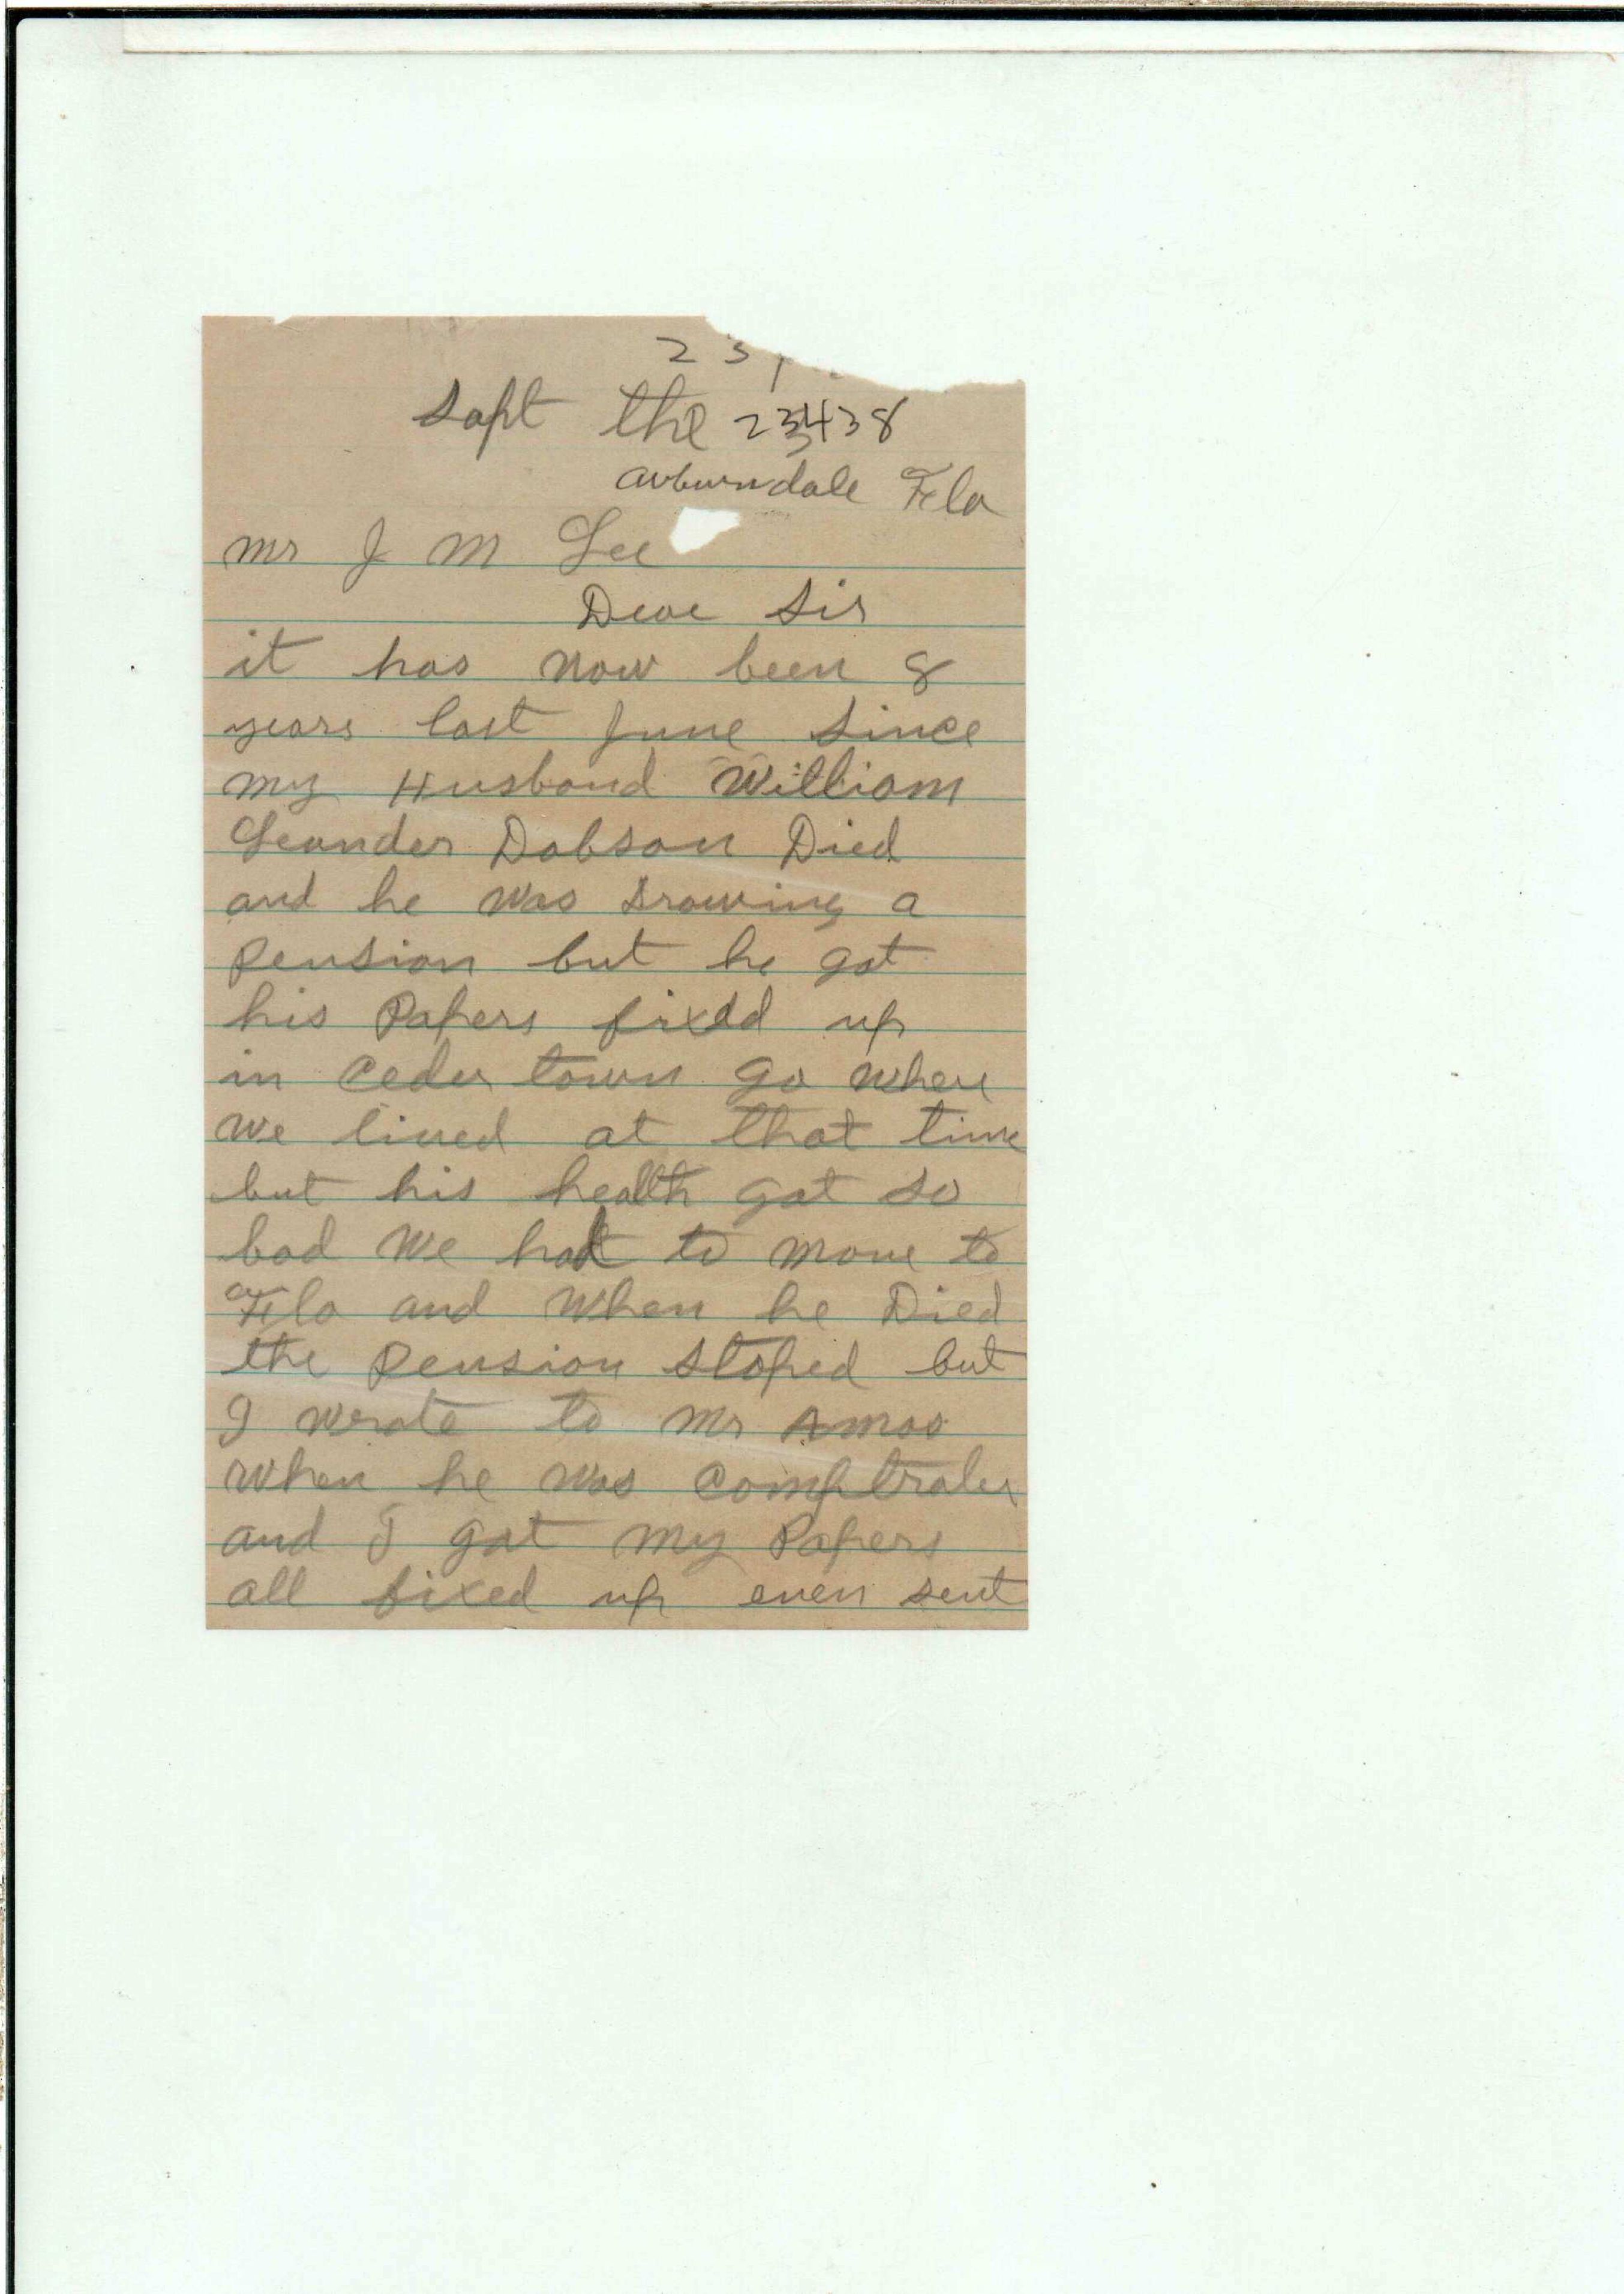 Sept the 23438
auburndale Fla
mr J M Lee
Dear Sir
it has now been 8
years last June Since
my Husband William
Leander Dobson Died
and he was Drawing a
Pension but he got
his Papers fixed up
in Ceder town ga where
we lived at that time
but his health got so
bad we had to move to
Fla and when he Died
the Pension stoped but
I wrote to Mr Amos
when he was Comptroler
and I got my Papers
all fixed up even sent